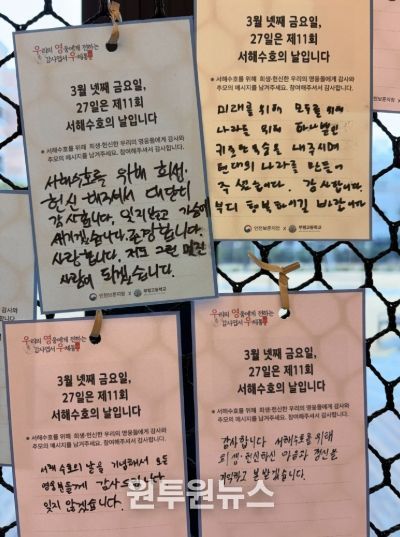 우리의 영웅에게 전하는
감사엽서 우체통
3월 넷째 금요일,
27일은 제11회
서해수호의 날입니다
※ 서해수호를 위해 희생·헌신한 우리의 영웅들에게 감사와
추모의 메시지를 남겨주세요. 참여해주셔서 감사합니다.
서해수호를 위해 희생,
헌신 해주셔서 대단히
감사합니다. 잊지않고 가슴에
새기겠습니다. 존경합니다.
사랑합니다. 저도 그런 멋진
사람이 되겠습니다.
인천보훈지청 x 부평고등학교
3월 넷째 금요일,
27일은 제11회
서해수호의 날입니다
※ 서해수호를 위해 희생·헌신한 우리의 영웅들에게 감사와
추모의 메시지를 남겨주세요. 참여해주셔서 감사합니다.
미래를 위해 모두를 위해
나라를 위해 하나뿐인
귀중한 목숨을 내주시며
현대의 나라를 만들어
주셨습니다. 감사합니다.
부디 행복하시길 바랍니다
인천보훈지청 x 부평고등학교
우리의 영웅에게 전하는
감사엽서 우체통
3월 넷째 금요일,
27일은 제11회
서해수호의 날입니다
※ 서해수호를 위해 희생·헌신한 우리의 영웅들에게 감사와
추모의 메시지를 남겨주세요. 참여해주셔서 감사합니다.
서해 수호의 날을 기념해서 모든
영웅분들께 감사드립니다
잊지 않겠습니다.
우리의 영웅에게 전하는
감사엽서 우체통
3월 넷째 금요일,
27일은 제11회
서해수호의 날입니다
※ 서해수호를 위해 희생·헌신한 우리의 영웅들에게 감사와
추모의 메시지를 남겨주세요. 참여해주셔서 감사합니다.
감사합니다 서해수호를 위해
희생·헌신하신 마음과 정신을
기억하고 본받겠습니다.
원투원뉴스